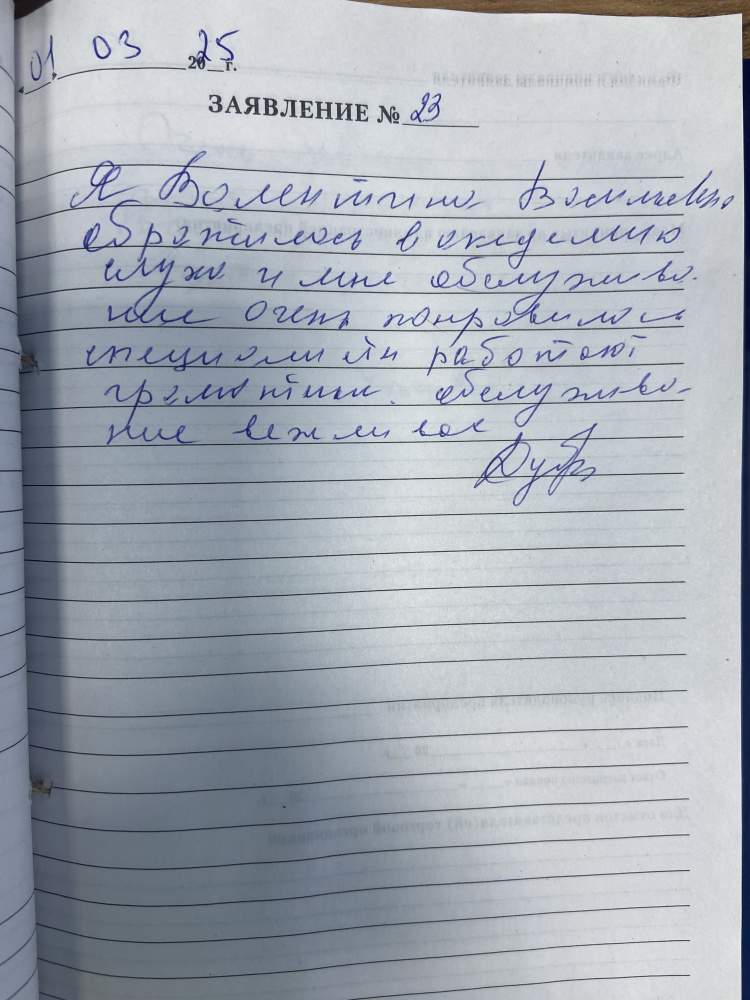 01 03 2025 г.
ЗАЯВЛЕНИЕ № 23
Я Валентина Васильевна
обратилась в академию
слуха и мне обслужива-
ние очень понравилось
специалисты работают
грамотно. обслужива-
ние вежливое